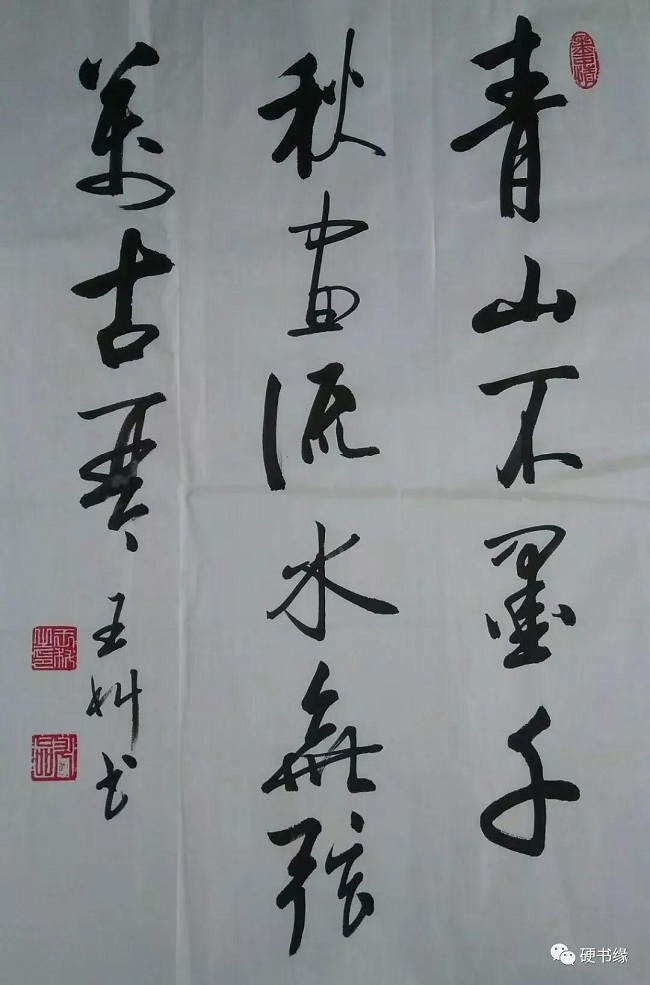 青山不墨千
秋画流水無弦
萬古琴
王
书
硬书缘